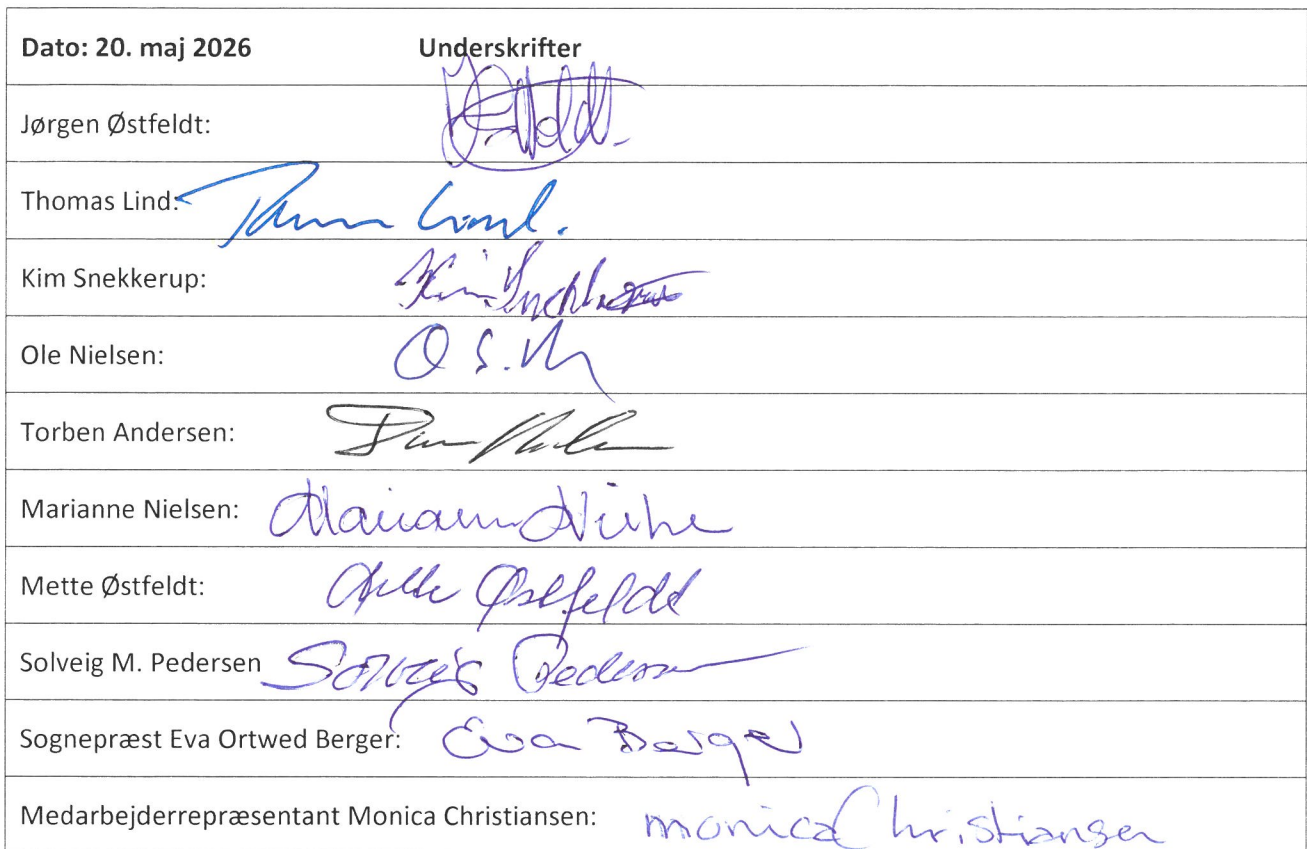 Dato: 20. maj 2026 Underskrifter
Jørgen Østfeldt:
Thomas Lind:
Kim Snekkerup:
Ole Nielsen: O S.
Torben Andersen:
Marianne Nielsen: Marianne
Mette Østfeldt: Mette Østfeldt
Solveig M. Pedersen Solveig Pedersen
Sognepræst Eva Ortwed Berger: Eva Berger
Medarbejderrepræsentant Monica Christiansen: monica Christiansen